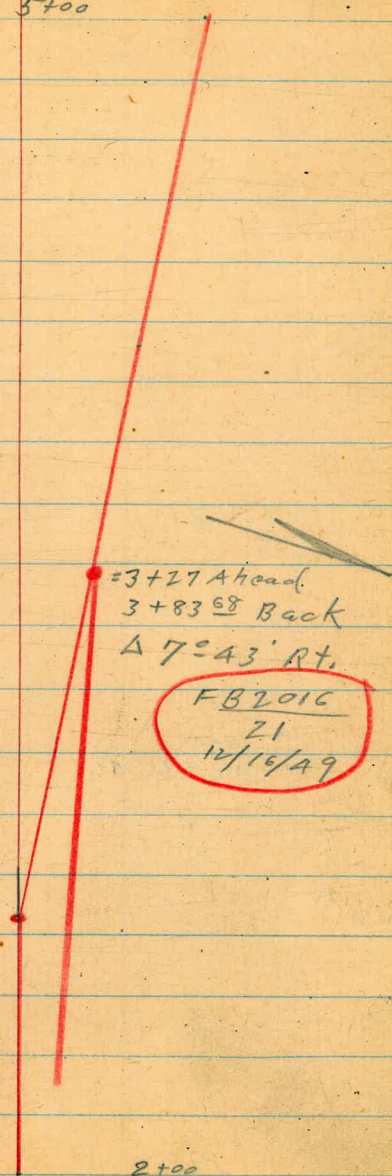 5+00
=3+27 Ahead
3+83 68 Back
Δ 7°43' Rt.
FB2016
21
12/16/49
2+00